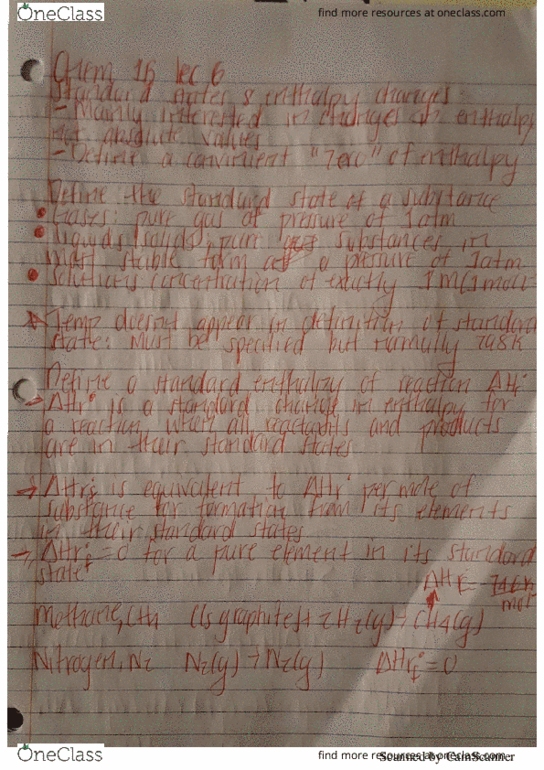 OneClass
find more resources at oneclass.com
Chem 1b lec 6
Standard states & enthalpy changes:
- Mainly interested in changes in enthalpy
not absolute values
- Define a convinient "zero" of enthalpy
Define the standard state of a substance
• Gases: pure gas at pressure of 1atm
• Liquids/solids: pure substances in
most stable form at a pressure of 1atm
• Solutions: concentration of exactly 1M(1mol/L
Temp doesnt appear in definition of standard
state: must be specified but normally 298K
Define a standard enthalpy of reaction ΔHr°
→ ΔHr° is a standard change in enthalpy for
a reaction, when all reactants and products
are in their standard states
→ ΔHf° is equivalent to ΔHr° per mole of
substance for formation from its elements
in their standard states
→ ΔHf° = 0 for a pure element in its standard
state
ΔHf°
mol
Methane, CH4 C(s graphite) + 2H2(g) → CH4(g)
Nitrogen, N2 N2(g) → N2(g) ΔHf° = 0
OneClass
find more resources at oneclass.com
Scanned by CamScanner